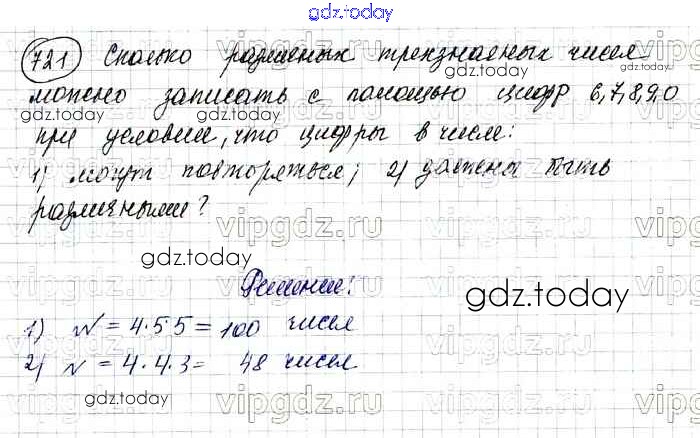 gdz.today
721 Сколько различных трехзначных чисел
можно записать с помощью цифр 6,7,8,9,0
при условии, что цифры в числе:
1) могут повторяться; 2) должны быть
различными?
gdz.today
Решение:
gdz.today
1) N = 4·5·5 = 100 чисел
2) N = 4·4·3 = 48 чисел
gdz.today
vipgdz.ru